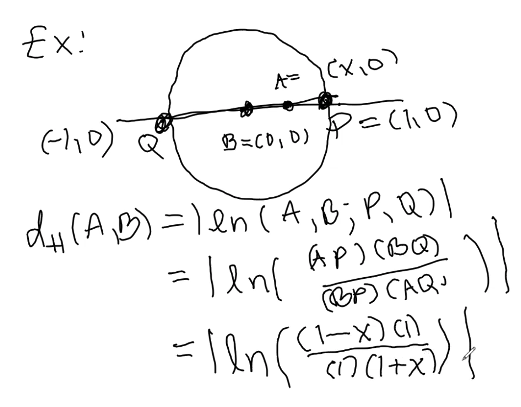 Ex:
A= (x,0)
(-1,0) Q B=(0,0) P=(1,0)
d_H(A,B) = |ln(A,B;P,Q)|
= |ln((AP)(BQ)/(BP)(AQ))|
= |ln((1-x)(1)/(1)(1+x))|